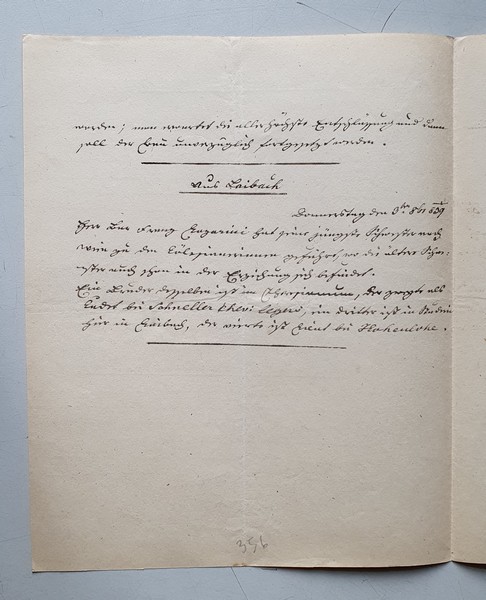 werden; man erwartet die allerhöchste Entschließung und dann
soll der Bau unverzüglich fortgesetzt werden.
Aus Laibach
Donnerstag den 3ten 8br 839
Herr Bar Franz hat seine jüngste Schwester nach
Wien zu den Salesianerinnen geführt, wo die ältere Schwe-
ster auch schon in der Erziehung sich befindet.
Ein Bruder desselben ist im Theresianum, der zweyte als
Kadet bei Schneller Chevi Legers, ein dritter ist in Studien
hier in Laibach, der vierte ist bei Hohenlohe.
356